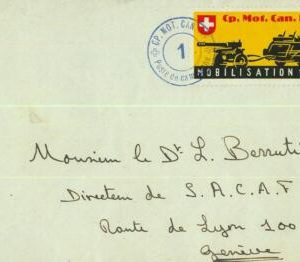 CP. MOT. CAN.
1
Poste de cam
Cp. Mot. Can.
MOBILISATION
Monsieur le Dr. L. Berruti
Directeur de S.A.C.A.F
Route de Lyon 100
Genève